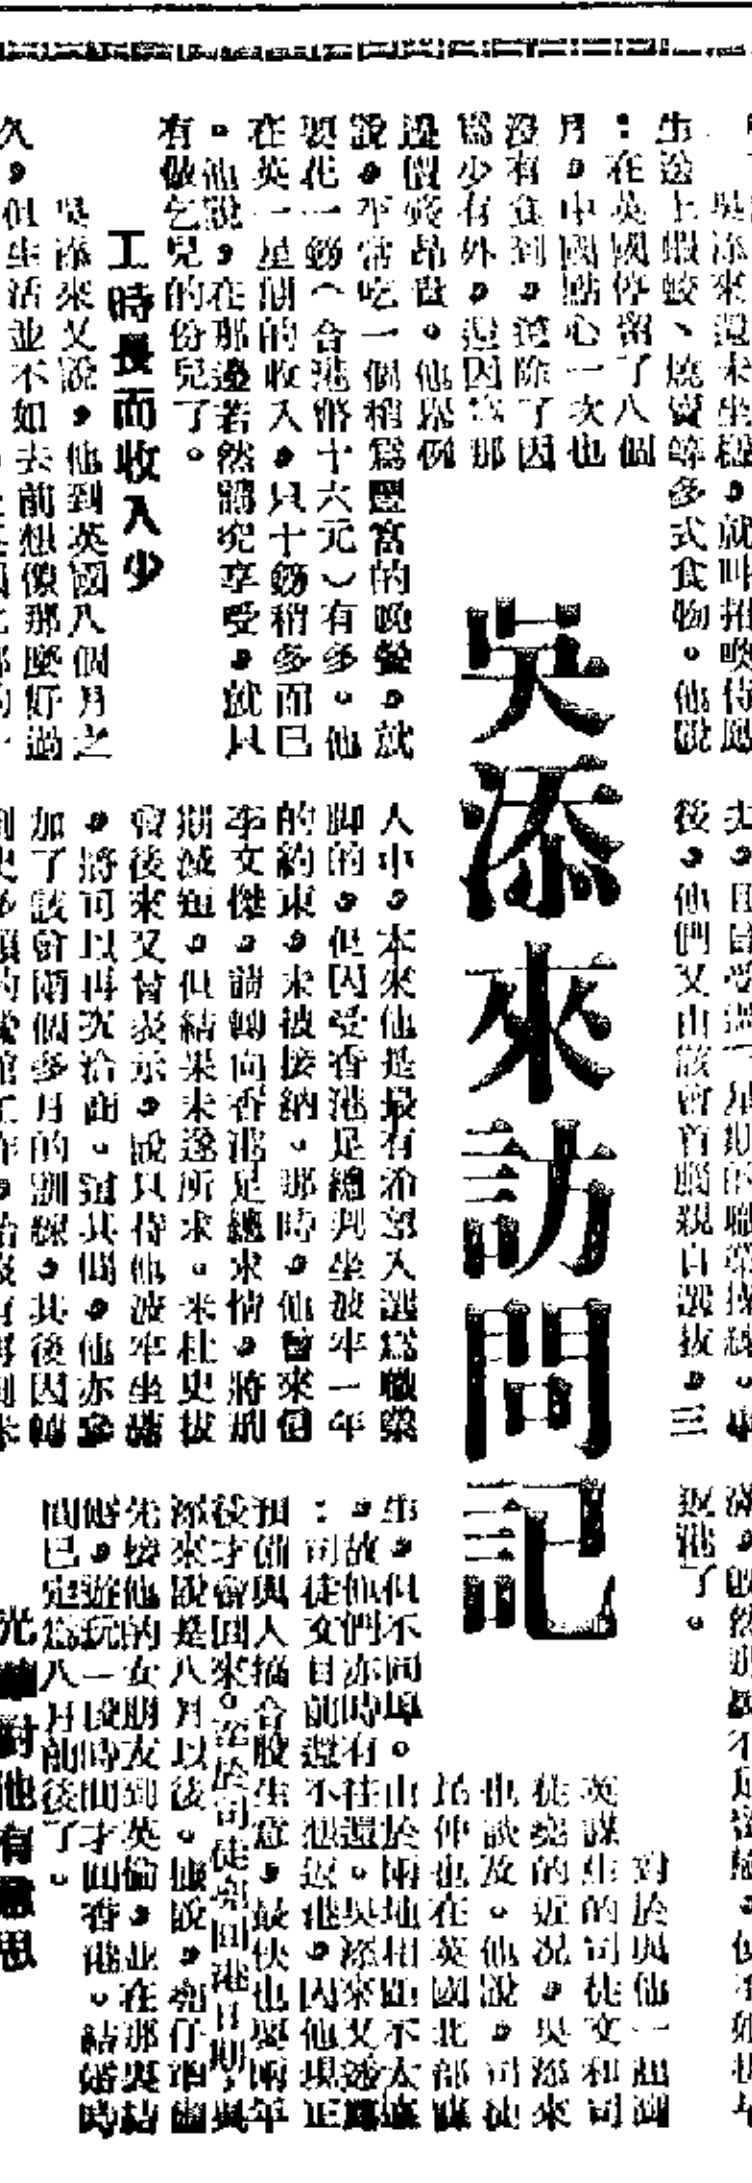 吳添來訪問記
吳添來還未坐穩，就叫招喚侍應
生送上蝦餃、燒賣等多式食物。他說
：在英國停留了八個
月，中國點心一次也
沒有食到。這除了因
爲少有外，還因爲那
邊價錢昂貴。他舉例
說，平常吃一個稍爲豐富的晚餐，就
要花一鎊（合港幣十六元）有多。他
在英一星期的收入，只十鎊稍多而已
。他說，在那邊若然講究享受，就只
有做乞兒的份兒了。
工時長而收入少
吳添來又說，他到英國八個月之
久，但生活並不如去前想像那麼好過
後，他們又由該會首腦親自選拔，三
人中，本來他是最有希望入選爲職業
脚的，但因受香港足總判坐波牢一年
的約束，未被接納。那時，他曾來信
李文傑，請轉向香港足總求情，將刑
期減短。但結果未遂所求。米杜史拔
會後來又曾表示，說只待他波牢坐滿
，將可以再次洽商。這其間，他亦參
加了該會兩個多月的訓練，其後因轉
返港了。
對於與他一起到
英謀生的司徒文和司
徒堯的近况，吳添來
也談及。他說，司徒
昆仲也在英國北部謀
生，但不同埠。由於兩地相距不太遠
，故他們亦時有往還。吳添來又透露
：司徒文目前還不想返港，因他現正
預備與人搞合股生意，最快也要兩年
後才會回來。至於司徒堯回港日期，吳
添來說是八月以後。據說，堯仔準備
先接他的女朋友到英倫，並在那裏結
婚，遊玩一段時間才回香港。結婚時
間已定爲八月前後了。